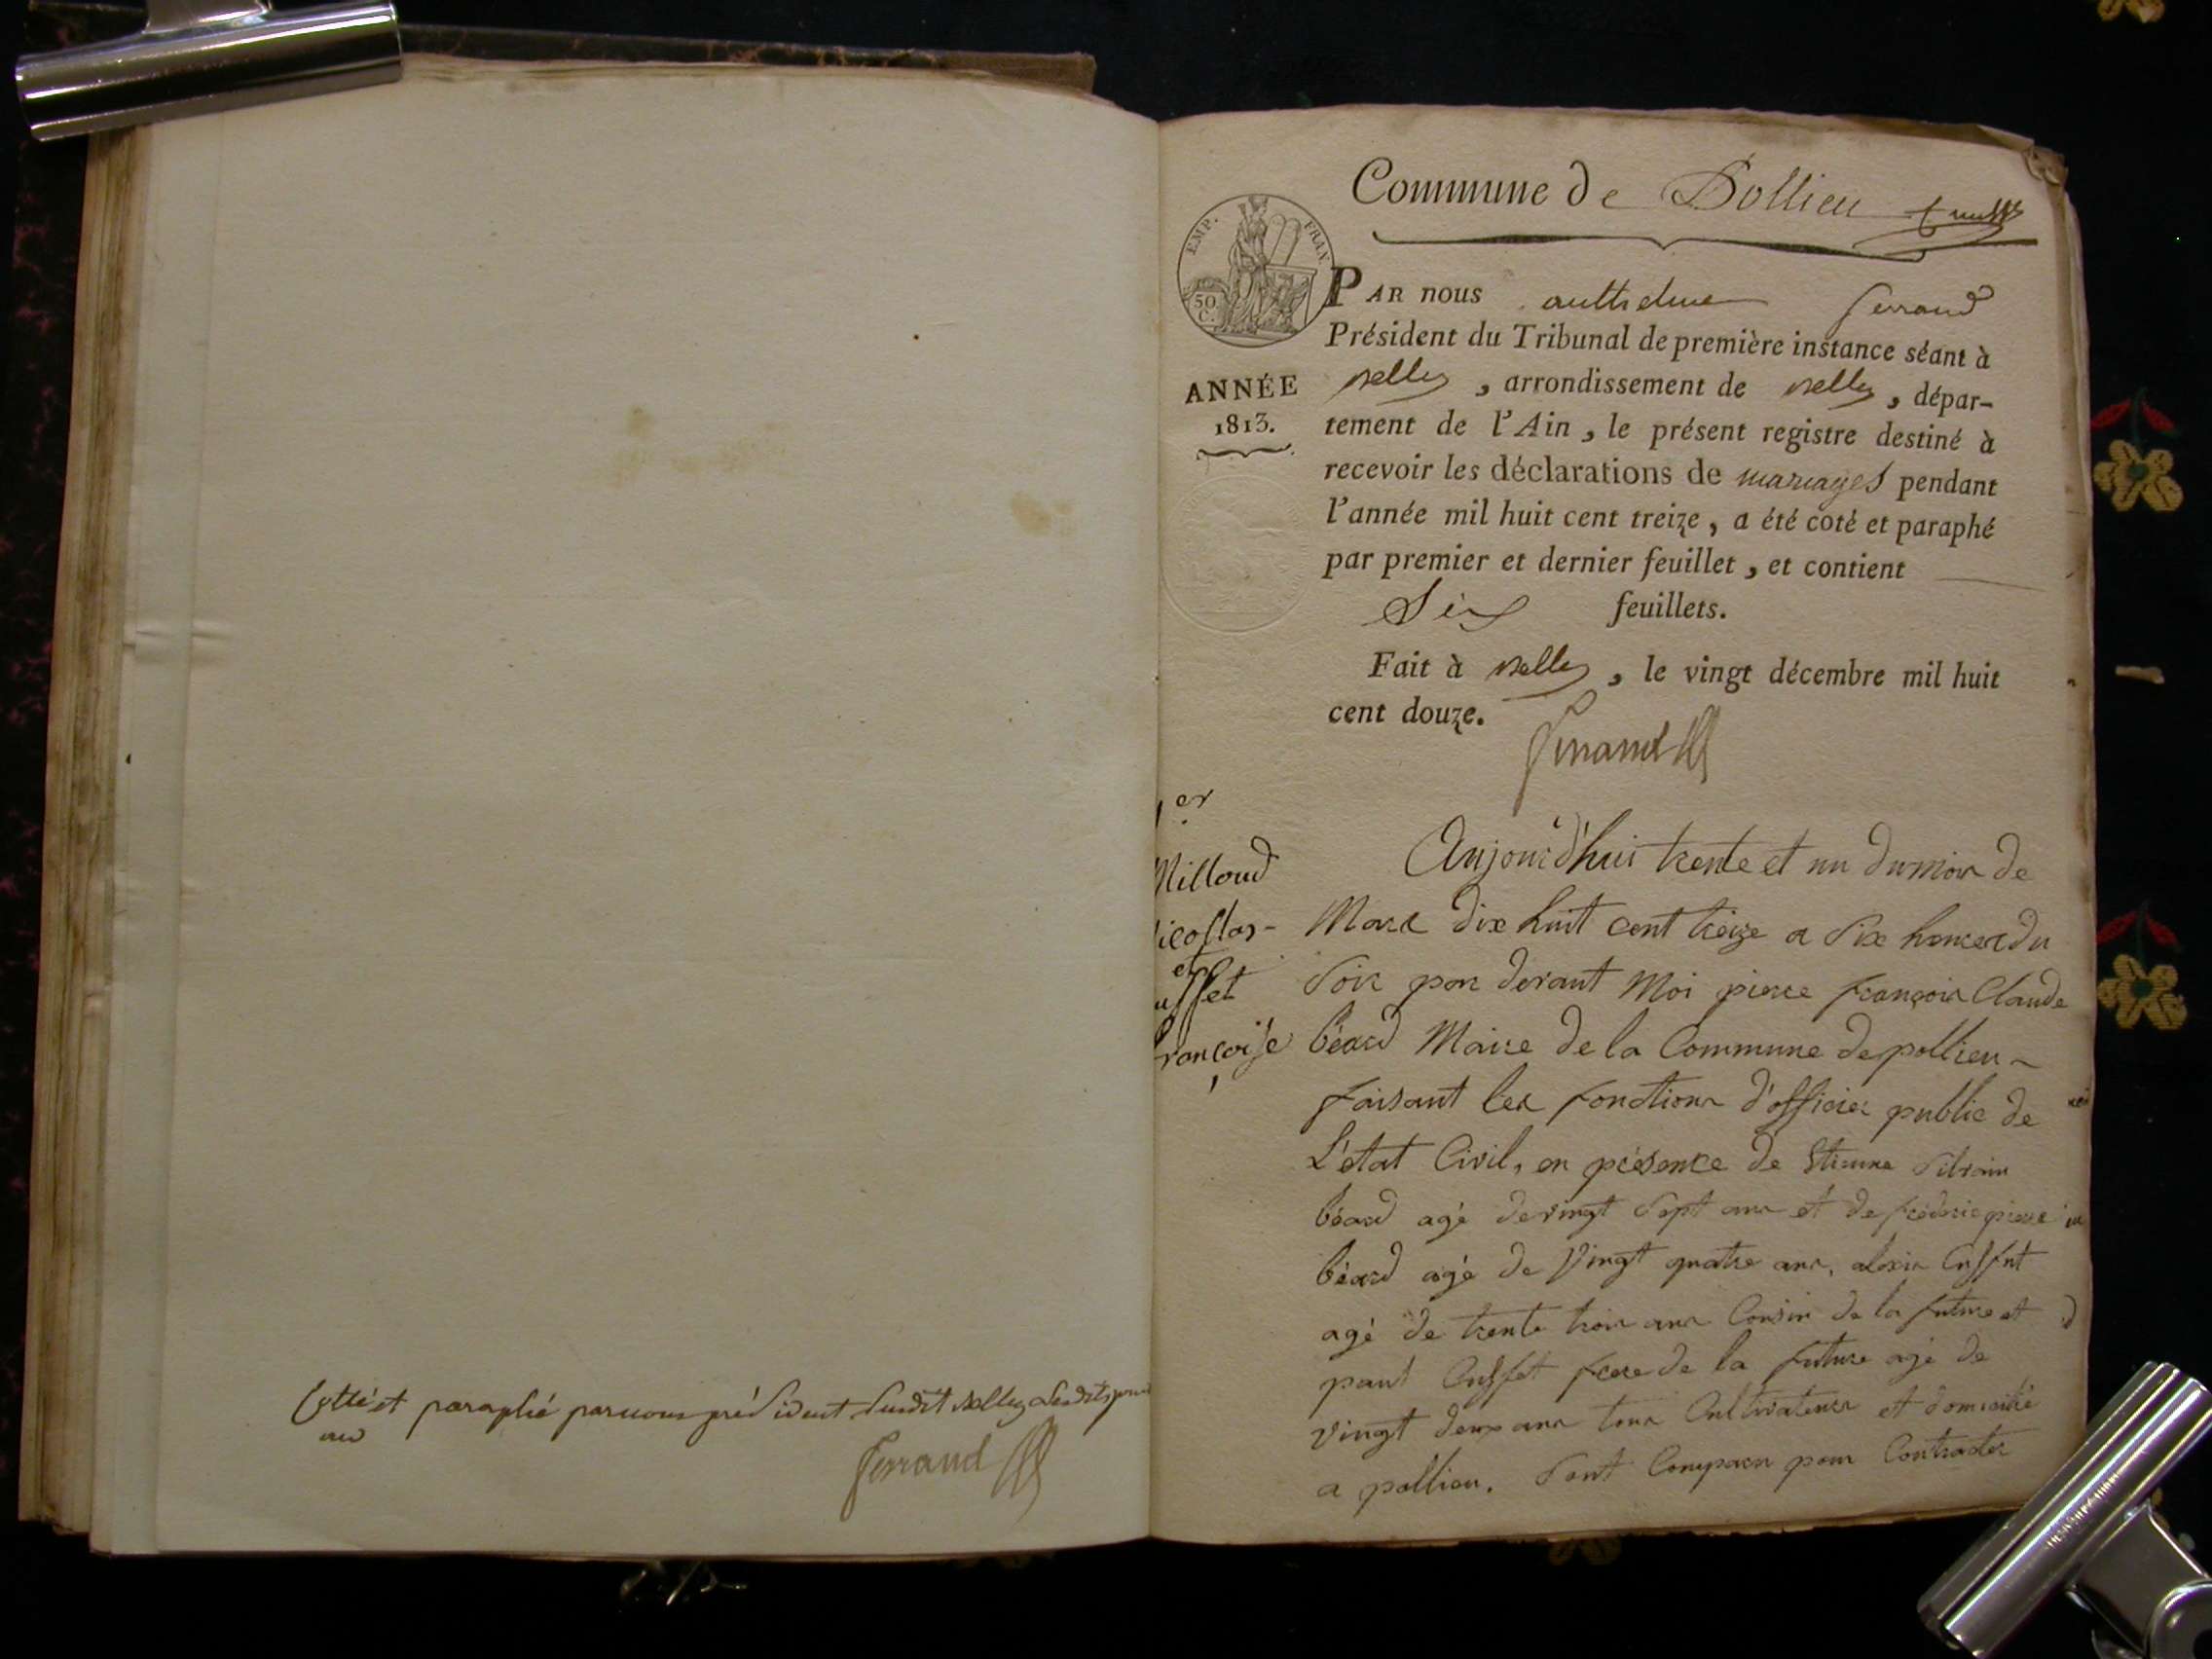 Cotté et paraphé par nous président susdit Belley lesdits jour
an
Ferraud
Commune de Pollieu
EMP. FRAN.
50 C.
ANNÉE
1813.
PAR nous anthelme Ferraud
Président du Tribunal de première instance séant à
Belley, arrondissement de Belley, dépar-
tement de l'Ain, le présent registre destiné à
recevoir les déclarations de mariages pendant
l'année mil huit cent treize, a été coté et paraphé
par premier et dernier feuillet, et contient
Six feuillets.
Fait à Belley, le vingt décembre mil huit
cent douze.
Ferraud
1er
Milloud
icollas-
et
uffet
rançoise
Aujourd'hui trente et un du mois de
Mars dix huit cent treize a Six heures du
Soir par devant Moi pierre françois Claude
béard Maire de la Commune de pollieu
faisant les fonctions d'officier public de
L'état Civil, en présence de Etienne Silvain
béard agé de vingt Sept ans et de fréderic pierre
béard agé de Vingt quatre ans, alexis Cuffet
agé de trente trois ans Cousin de la future et
paul Cuffet frere de la future agé de
vingt deux ans tous Cultivateurs et domicilié
a pollieu. Sont Comparu pour Contracter